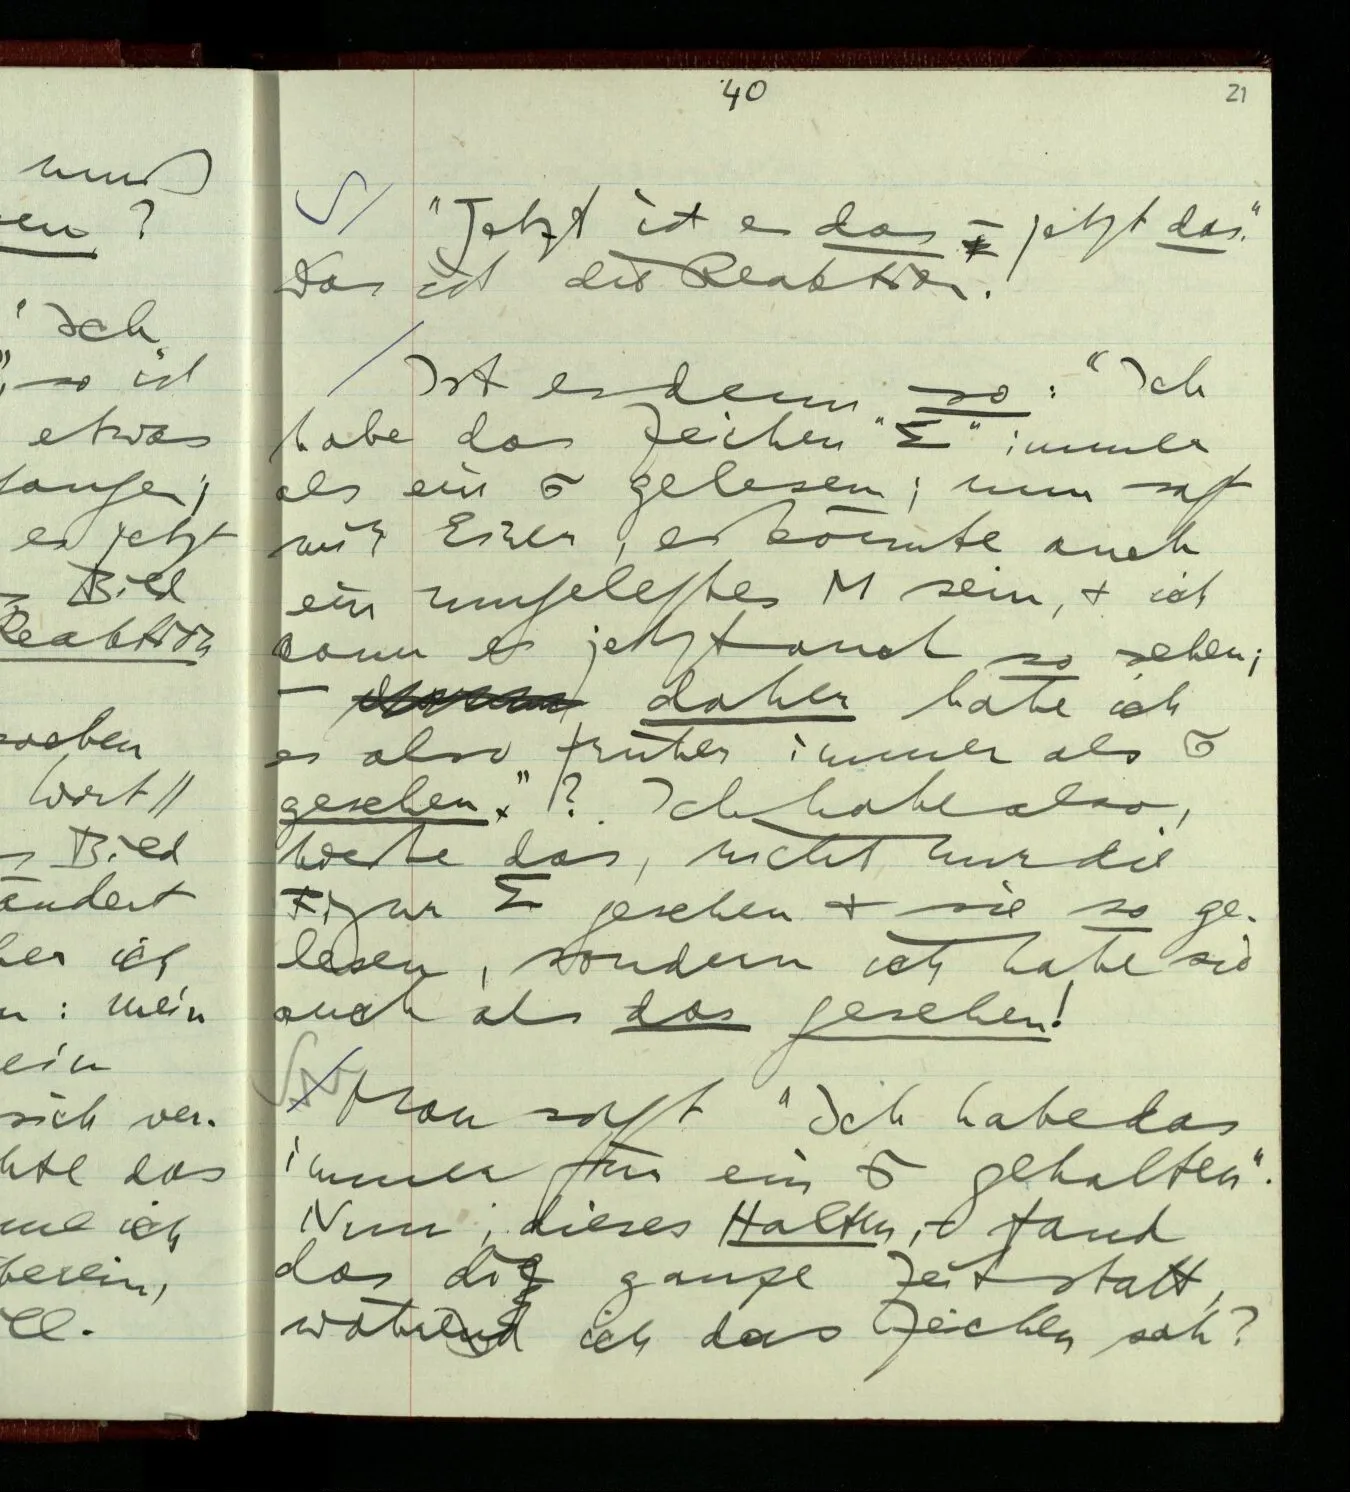 muß
en ?
"Ich
", so ist
etwas
es jetzt
Bild
Reaktion
Wort //
Bild
ändert
her ich
: mein
ein
sich ver-
hte das
ich
herein,
40
21
S / "Jetzt ist es das – jetzt das."
Das ist die Reaktion.
/ Ist es denn so: "Ich
habe das Zeichen "Σ" immer
als ein σ gelesen; nun sagt
mir Einer, es könnte auch
ein umgelegtes M sein, + ich
kann es jetzt auch so sehen;
– daher habe ich
es also früher immer als σ
gesehen." ? Ich habe also,
hieße das, nicht nur die
Figur Σ gesehen + sie so ge-
lesen, sondern ich habe sie
auch als das gesehen!
S / Man sagt "Ich habe das
immer für ein σ gehalten".
Nun, dieses Halten, – fand
das die ganze Zeit statt,
während ich das Zeichen sah?